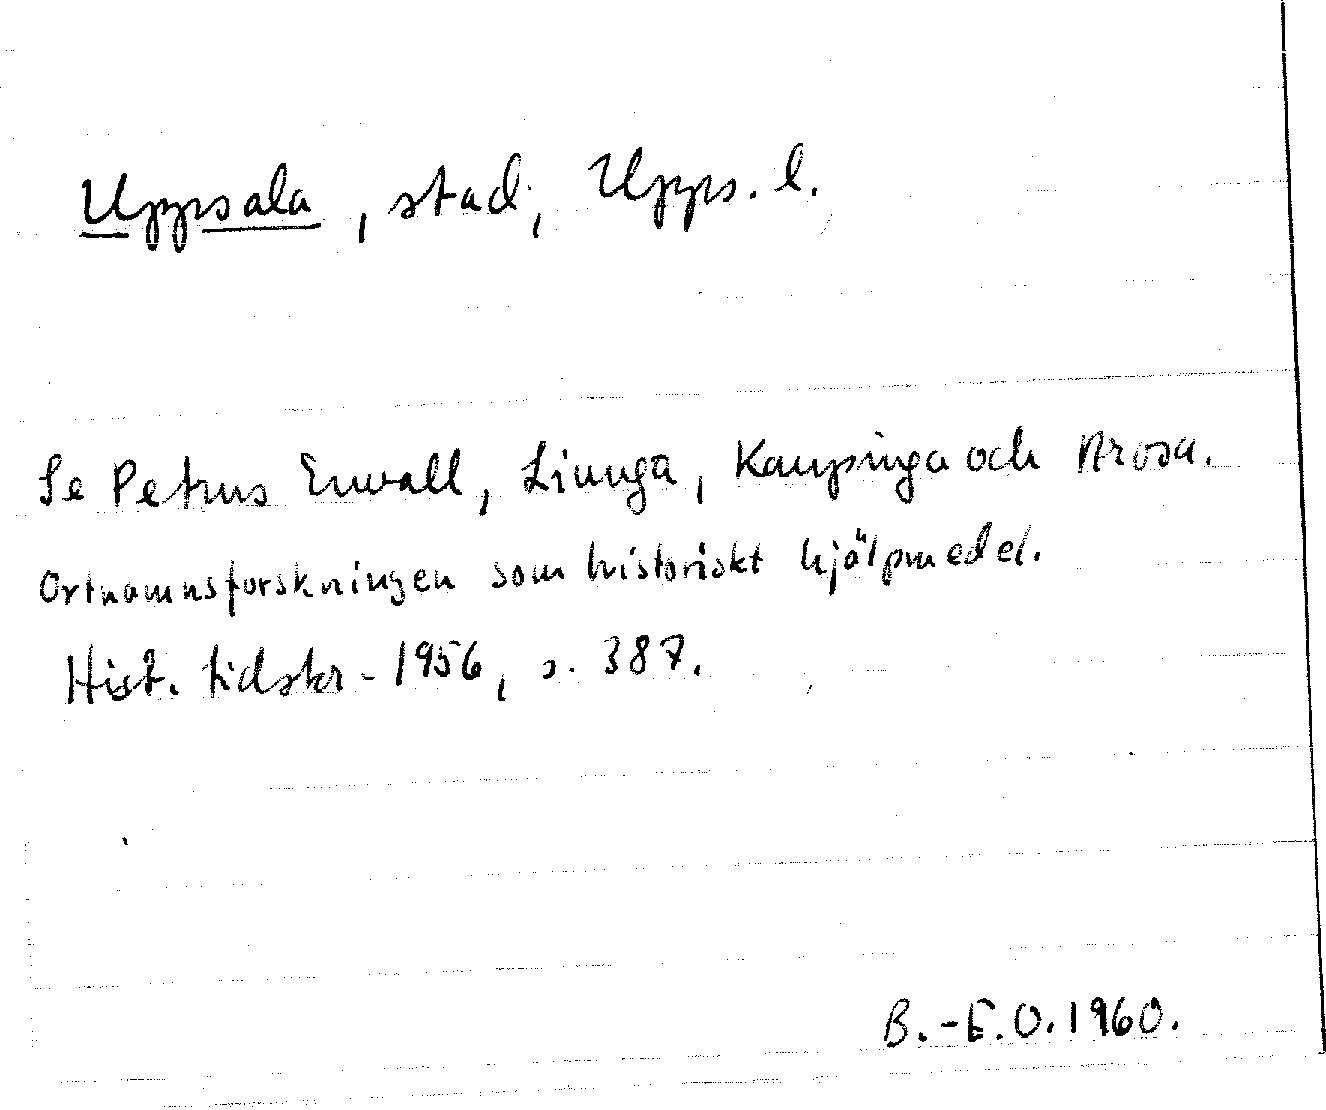 Uppsala, stad, Upps. l.
Se Petrus Envall, Liunga, Kaupinga och Arosa.
Ortnamnsforskningen som historiskt hjälpmedel.
Hist. tidskr. 1956, s. 387.
B.-E.O. 1960.